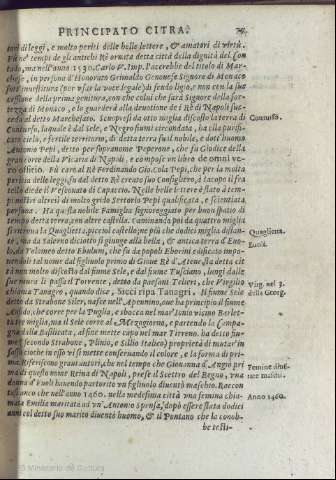 PRINCIPATO CITRA. 29
toni di leggi, e molto periti delle belle lettere, & amatori di virtù.
Fù nè tempi de gli antichi Rè ornata detta città della dignità del Con
tado, ma nell'anno 1530. Carlo V. Imp. l'accrebbe del titolo di Mar-
chese, in persona d'Honorato Grimaldo Genouese Signore di Monaco
sott'inuestitura (per vsar la voce legale) di feudo ligio, e non con la suc
cessione della prima genitura, con che colui che sarà Signore della for-
tezza di Monaco, e la guarderà alla deuotione de i Rè di Napoli suc-
ceda al detto Marchesato. Scuopresi da otto miglia discosto la terra di
Contursi, laquale è dal Sele, e Negro fiumi circondata, ha ella purissi-
mo cielo, e fertile territorio, di detta terra fu il nobile, e dott'huomo
Amoro Pepi, detto per soprannome Peperone, che fu Giodice della
gran corte della Vicaria di Napoli, e compose vn libro de omni vero
officio. Fù caro al Rè Ferdinando Gio. Cola Pepe, che per la molta
peritia delle leggi, fu dal detto Rè creato suo Consigliero, à Iacopo il fra
tello diede il Vescouato di Capaccio. Nelle belle lettere è stato à tempi
nostri di grido Sertorio Pepi qualificata, e scientiata
persona. Ha questa nobile Famiglia signoreggiato per buon spatio di
tempo detta terra, con altre castella. Caminando poi da quattro miglia
si ritroua la Quaglietta, picciol castello; ma più che dodici miglia distan-
te, ma da Salerno diciotto si giunge alla bella, & antica terra d'Euo-
li, da Tolomeo detto Ebulum, che fu da popoli Eborini edificato impo-
nendoli tal nome dal figliuolo primo di Gioue Rè d'Atene, la detta cit
tà non molto discosta dal fiume Sele, e dal fiume Tusciano, lungi dalle
sue mura li passa il Torrente, detto da paesani Telegro, che Virgilio
chiama Tanagro, quando dice, Sicci ripa Tanagri. Il fiume Sele
detto da Strabone Siler, nasce nell'Apennino, oue ha principio il fiume
Aufido, che corre per la Puglia, e sbocca nel mar Ionio vicino Barlet-
ta tre miglia, ma il Sele corre al Mezogiorno, e partendo la Campa-
gna dalla Basilicata, alfine mette capo nel mar Tirreno. ha detto fiu-
me (secondo Strabone, Plinio, e Sillio Italico) proprietà di mutar in
sasso ciò che in esso vi si mette conseruando il colore, e la forma di pri-
ma. Riferiscono graui autori, che nel tempo che Giouanna d'Angiò pri
ma di questo nome Reina di Napoli, prese il Scettro del Regno, vna
donna d'Euoli hauendo partorito vn figliuolo diuentò maschio. Raccon
ta che nell'anno 1460. nella medesima città vna femina chia-
mata Emilia maritata ad vn'Antonio Spensa, dopò essere stata dodici
anni col detto suo marito diuentò huomo, & il Pontano che la conob-
be testi-
Contursi.
Quaglietta.
Euoli.
Virg. nel 3.
della Georg.
Femine diue-
nute maschi.
Anno 1460.
© Ministerio de Cultura